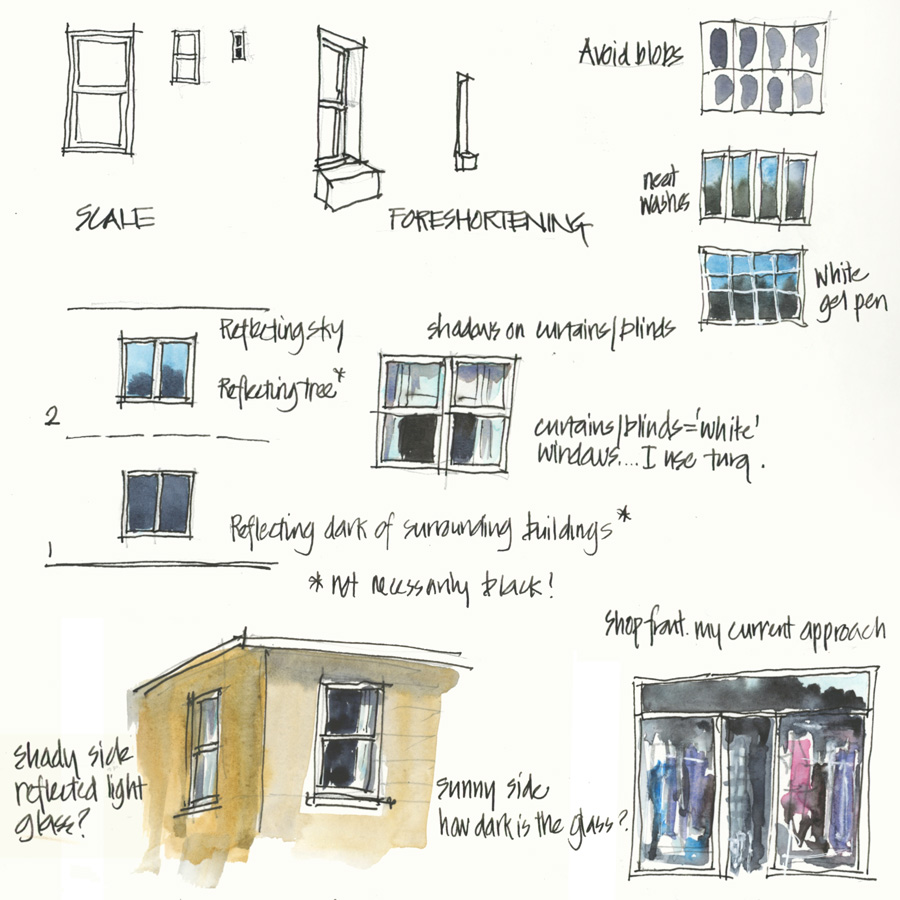 Avoid blobs
neat
washes
SCALE
FORESHORTENING
White
gel pen
Reflecting sky
shadows on curtains/blinds
Reflecting tree*
2
curtains/blinds='white'
windows....I use turq.
Reflecting dark of surrounding buildings*
1
* not necessarily black!
shop front. my current approach
shady side
reflected light
glass?
sunny side
how dark is the glass?